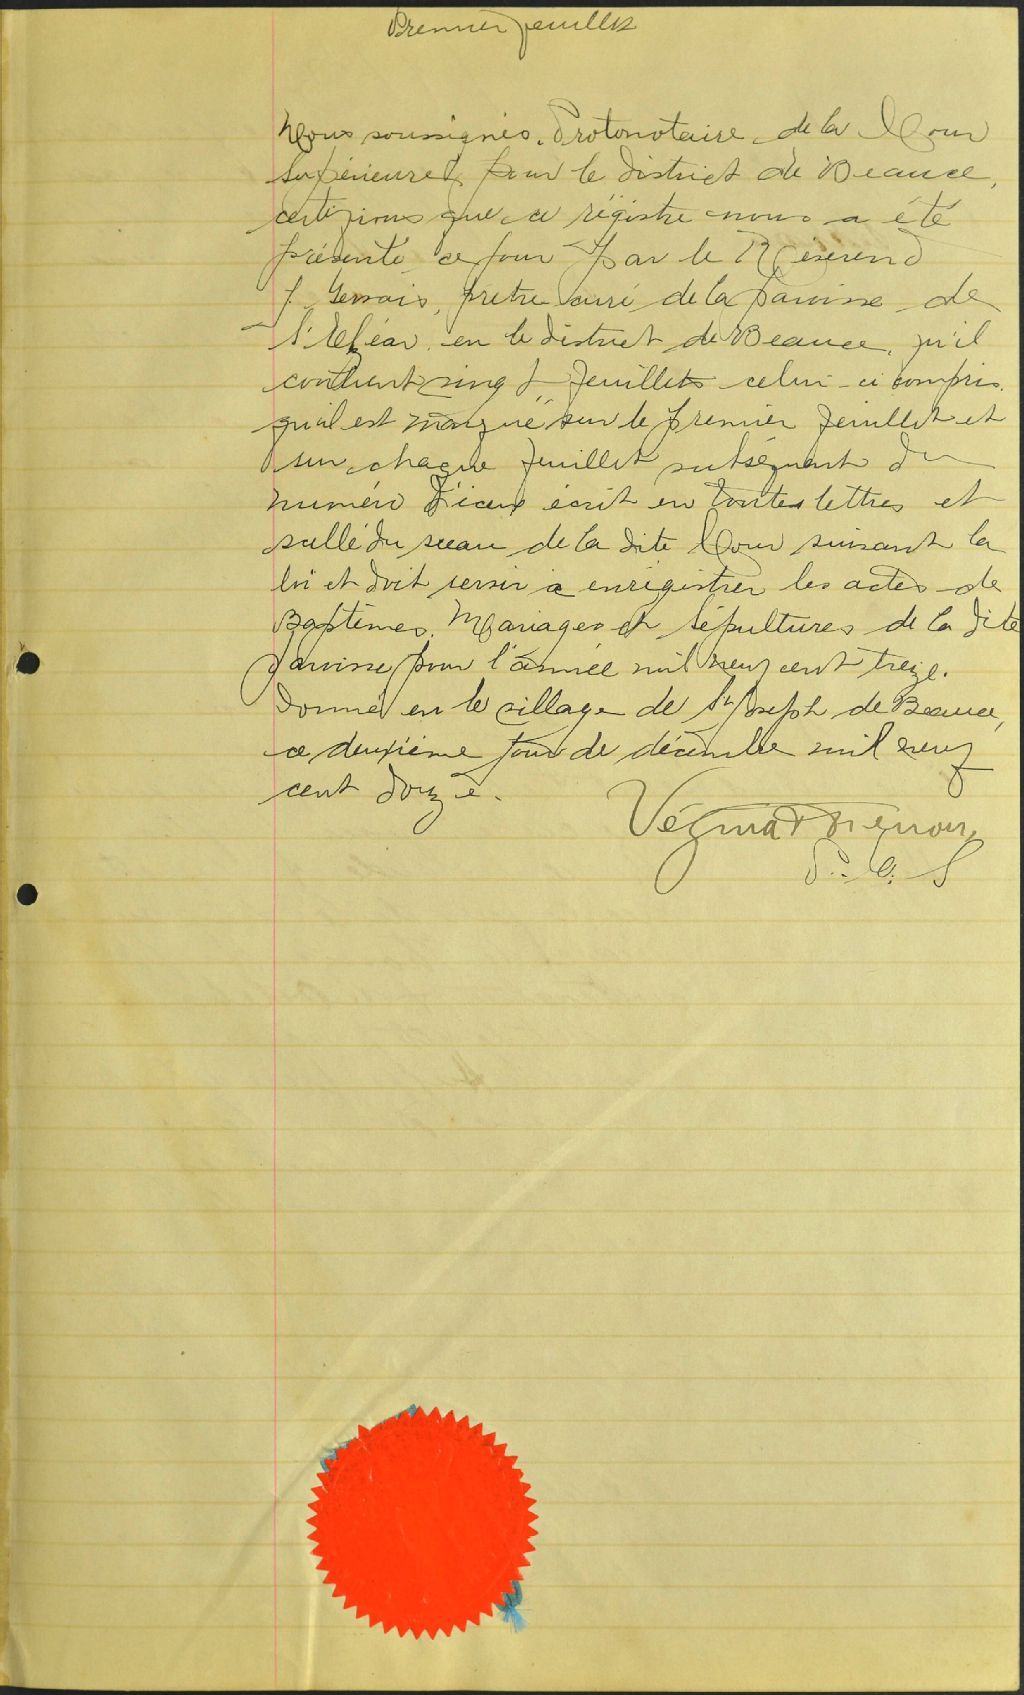 Premier feuillet
Nous soussignés, Protonotaire de la Cour
Supérieure, pour le district de Beauce,
certifions que ce régistre nous a été
présenté ce jour par le Révérend
J Gervais, prêtre curé de la paroisse de
en le district de Beauce, qu'il
contient feuillets celui-ci compris
qu'il est marqué sur le premier feuillet et
sur chaque feuillet subséquent du
numéro d'iceux écrit en toutes lettres et
scellé du sceau de la dite Cour suivant la
loi et doit servir à enrégistrer les actes de
Baptêmes, Mariages et Sépultures de la dite
paroisse pour l'année mil neuf cent treize.
Donné en le village de St Joseph de Beauce,
ce deuxième jour de décembre mil neuf
cent douze.
Vézina &
P. C. S